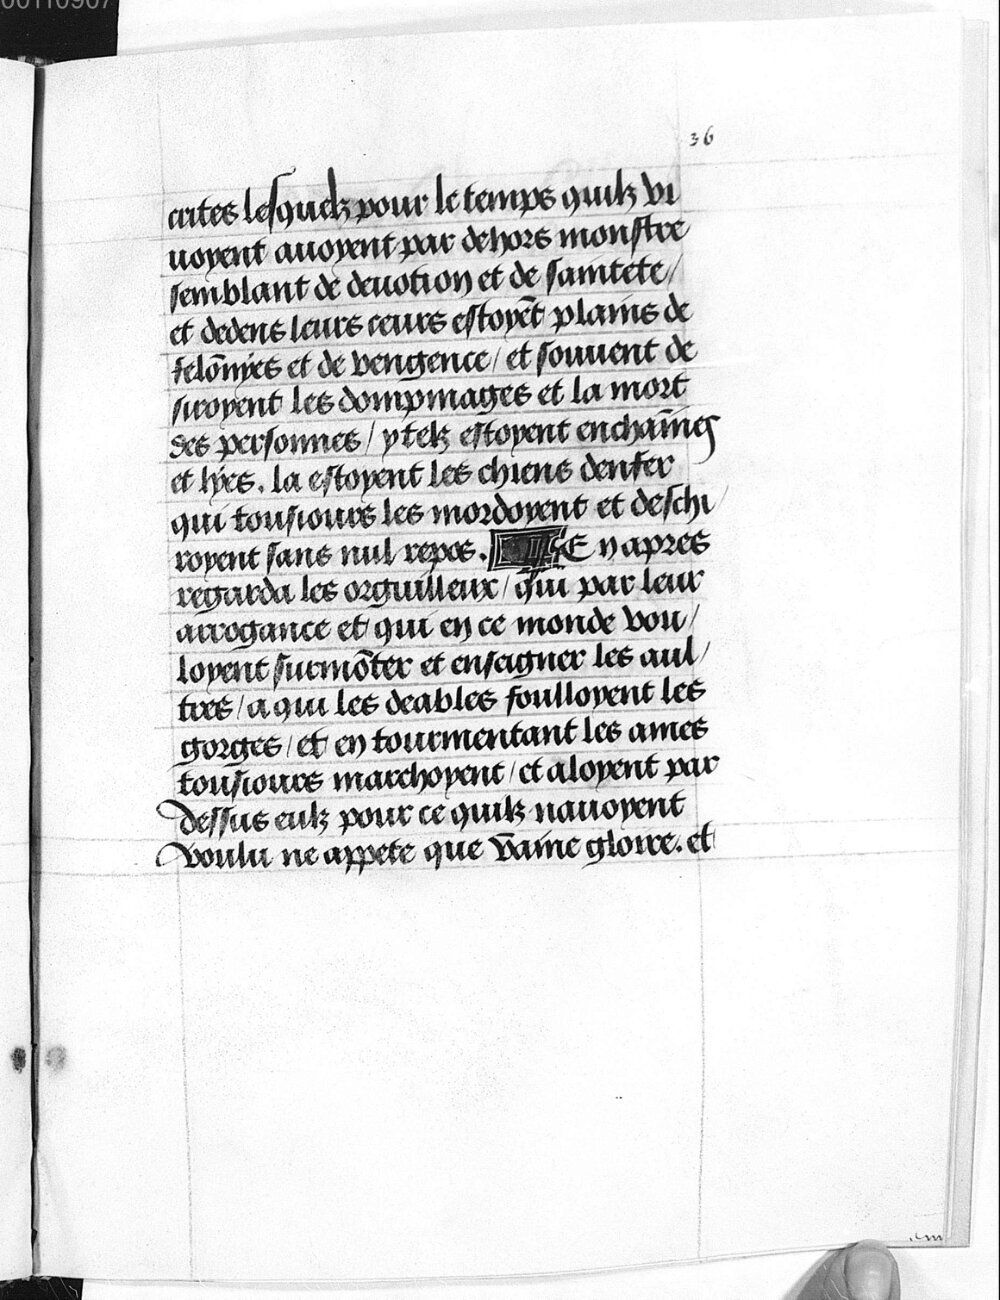 00110907
36
crites lesquelz pour le temps quilz vi
voyent avoyent par dehors monstre
semblant de devotion et de sainctete/
et dedens leurs ceurs estoyēt plains de
felōnyes et de vengence/ et souvent de
siroyent les dompmages et la mort
des personnes/ ytelz estoyent enchaīnes
et lyes. la estoyent les chiens denfer
qui tousiours les mordoyent et deschi/
royent sans nul repos. E n apres
regarda les orguilleux/ qui par leur
arrogance et qui en ce monde vou/
loyent surmōter et enseigner les aul/
tres/ a qui les deables foulloyent les
gorges/ et en tourmentant les ames
tousiours marchoyent/ et aloyent par
dessus eulz pour ce quilz navoyent
voulu ne appete que vaine gloire. et